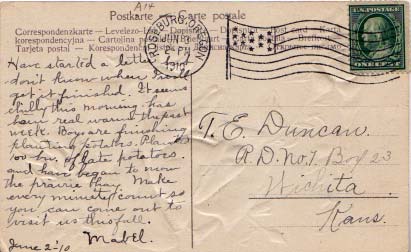 A14
Postkarte - Carte postale
Correspondenzkarte — Levelezo-
korespondencyjna — Cartolina
Tarjeta postal — Korespondencni
ROSEBURG, OREGON
JUN
PM
1910
ONE CENT
Have started a letter but
don't know when I will
get it finished. It seems
chilly this morning has
been real warm the past
week. Boys are finishing
planting potatoes. Planted
100 bu. of late potatoes.
and have begun to mow
the prairie hay. Make
every minute count so
you can come out to
visit us this fall.
Mabel.
June 2-10
T. E. Duncan.
R.D. No. 1 Box 23
Wichita
Kans.